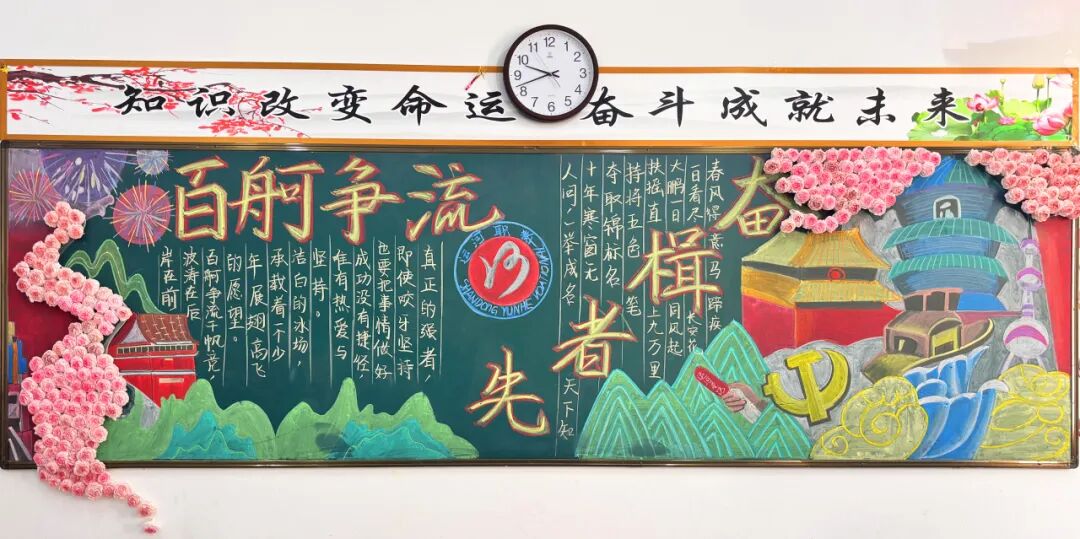 知识改变命运 奋斗成就未来
百舸争流
奋楫者先
真正的强者，
即使咬牙坚持
也要把事情做好
成功没有捷径，
唯有热爱与
坚持。
洁白的冰场，
承载着一个少
年展翅高飞
的愿望。
百舸争流千帆竞，
波涛在后
岸在前
春风得意马蹄疾
一日看尽长安花
大鹏一日同风起
扶摇直上九万里
持将五色笔
夺取锦标名
十年寒窗无
人问一举成名天下知
运河职
SHANDONG YUNHE
12
1
2
3
4
5
6
7
8
9
10
11